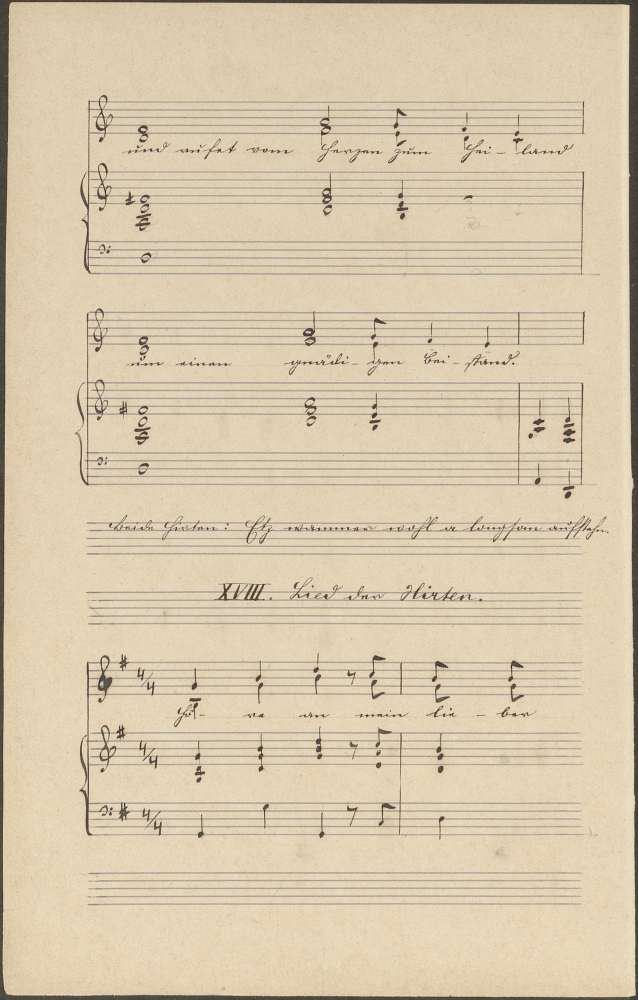 und rufet vom Herzen zum Hei - land
um einen gnädi - gen Bei - stand.
Beide Hirten: Etz wammer wohl a langsam aufstehn.
XVIII. Lied der Hirten.
4/4
Hö - re an mein lie - ber
4/4
4/4